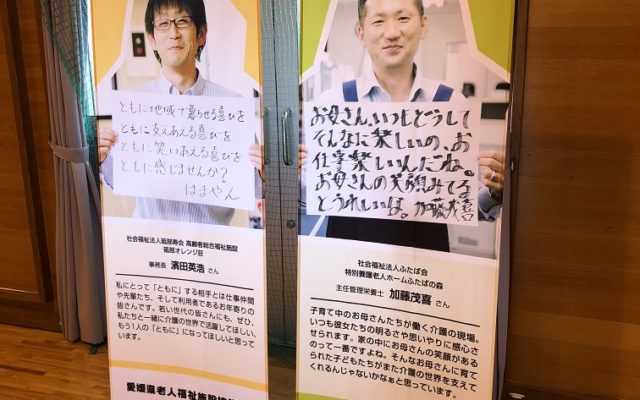 ともに地域で暮らせる喜びを
ともに支えあえる喜びを
ともに笑いあえる喜びを
ともに感じませんか?
はまやん
社会福祉法人砥部寿会 高齢者総合福祉施設
砥部オレンジ荘
事務長 濱田英浩 さん
私にとって「ともに」する相手とは仕事仲間
や先輩たち、そして利用者であるお年寄りの
皆さんです。若い世代の皆さんにも、ぜひ、
私たちと一緒に介護の世界で活躍してほしい、
もう1人の「ともに」になってほしいと思って
います。
愛媛県老人福祉施設協
お母さん、いつもどうして
そんなに楽しいの、お
仕事楽しいんだね。
お母さんの笑顔みてる
とうれしいよ。加藤茂喜
社会福祉法人ふたば会
特別養護老人ホームふたばの森
主任管理栄養士 加藤茂喜 さん
子育て中のお母さんたちが働く介護の現場。
いつも彼女たちの明るさや思いやりに感心さ
せられます。家の中にお母さんの笑顔がある
のって一番ですよね。そんなお母さんに育て
られた子どもたちがまた介護の世界を支えて
くれるんじゃないかなぁと思っています。